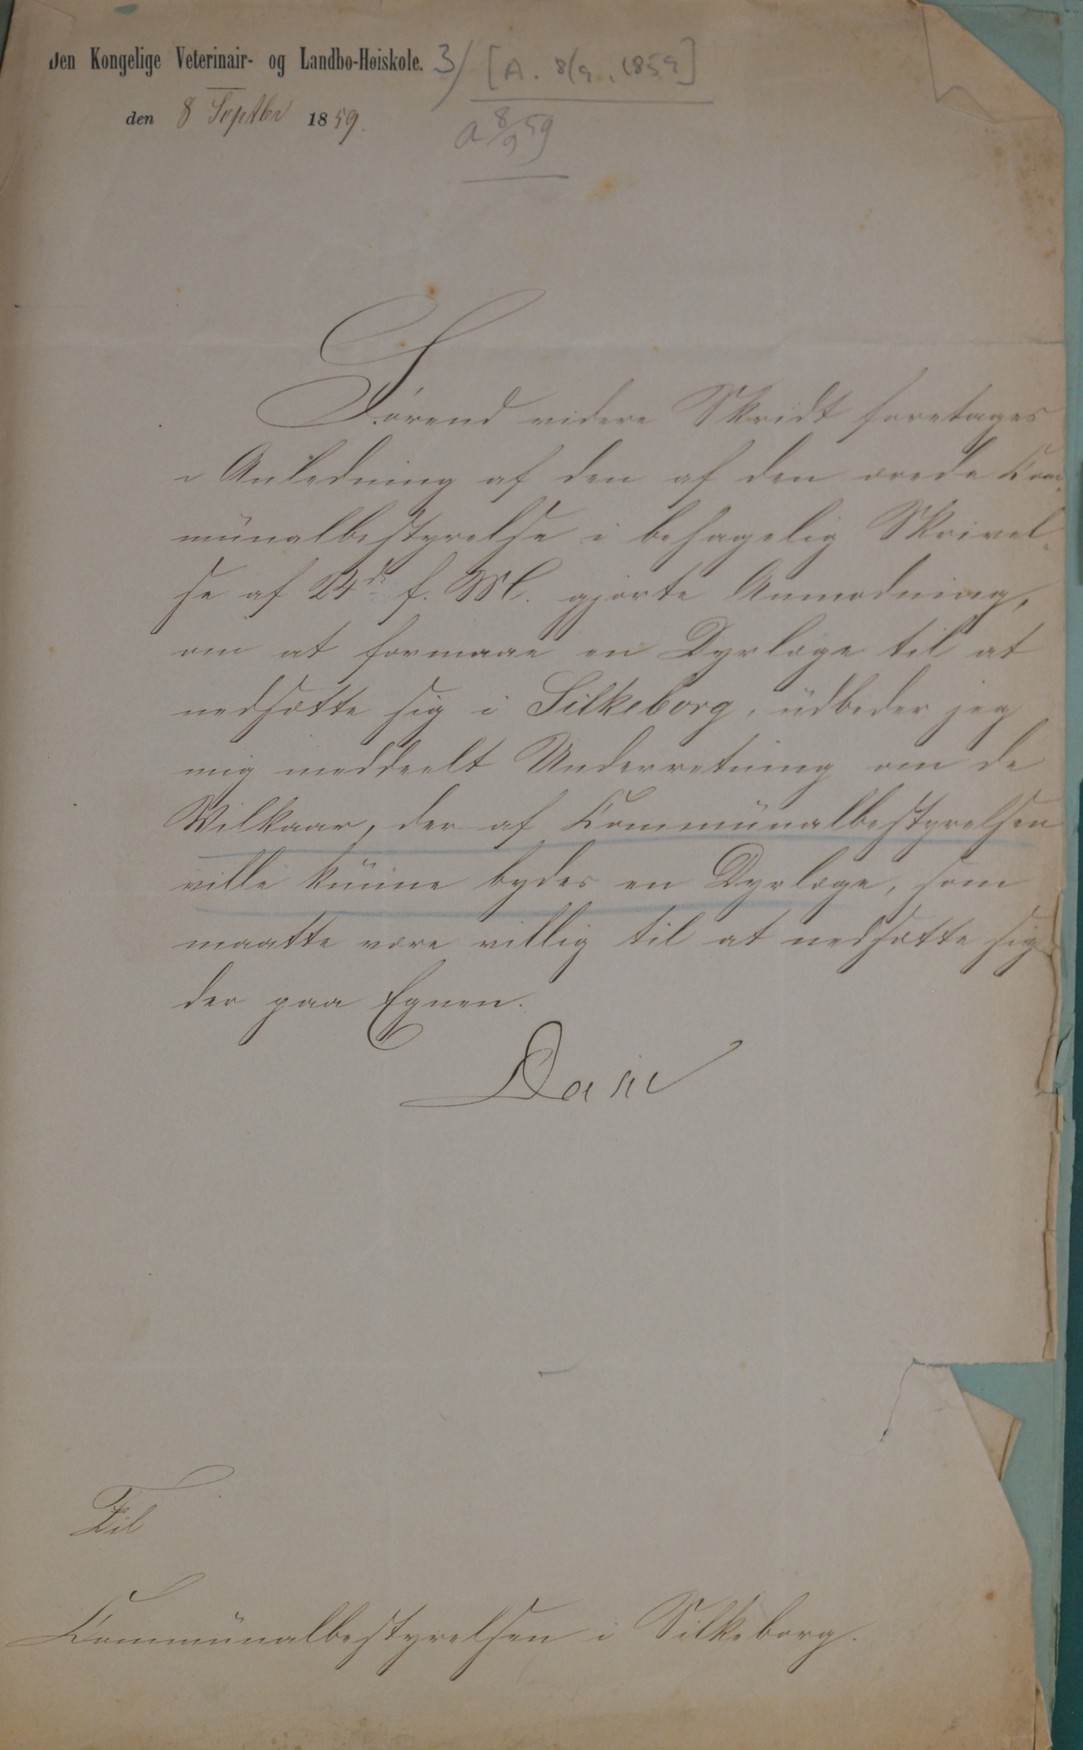 Den Kongelige Veterinair- og Landbo-Høiskole. 3/ [A. 8/9. 1859]
den 8 Septbr 1859.
a 8/9 59
Førend videre Skridt foretages
i Anledning af den af den ærede Com-
munalbestyrelse i behagelig Skrivel-
se af 24d. f. M. gjorte Anmodning,
om at formaae en Dyrlæge til at
nedsætte sig i Silkeborg, udbeder jeg
mig meddeelt Underretning om de
Vilkaar, der af Communalbestyrelsen
ville kunne bydes en Dyrlæge, som
maatte være villig til at nedsætte sig
der paa Egnen.
Til
Communalbestyrelsen i Silkeborg.